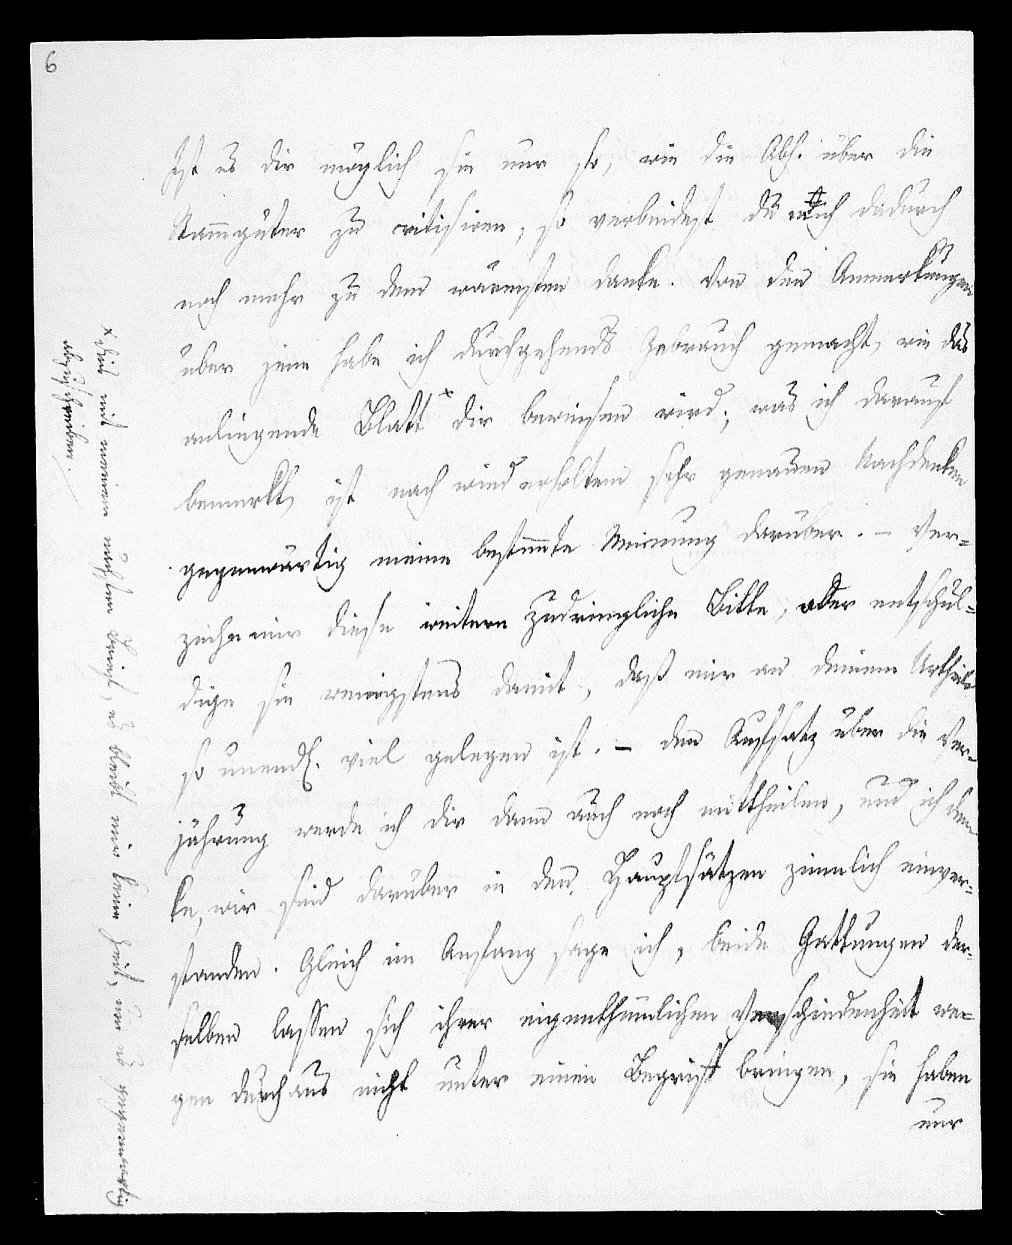 6
Ist es dir möglich sie nur so, wie die Abh. über die
Stammgüter zu critisiren, so verbindest du mich dadurch
noch mehr zu dem wärmsten danke. Von den Anmerkungen
über jene habe ich durchgehends Gebrauch gemacht, wie das
anliegende Blatt x dir beweisen wird; was ich darauf
bemerkt, ist nach wiederholtem sehr genauen Nachdenken
gegenwärtig meine bestimmte Meinung darüber. – Ver=
zeihe mir diese weitere zudringliche Bitte, oder entschul=
dige sie wenigstens damit, daß mir an deinem Urtheile
so unendl. viel gelegen ist. – den Aufsatz über die Ver=
jährung werde ich dir dann auch noch mittheilen, und ich den=
ke, wir sind darüber in den Hauptsätzen ziemlich einver=
standen. Gleich im Anfang sage ich, beide Gattungen der=
selben lassen sich ihrer eigenthümlichen Verschiedenheit we=
gen durchaus nicht unter einen Begriff bringen, sie haben
nur
x mit meinem nächsten Brief, es bleibt mir keine Zeit, um es gegenwärtig
abzuschreiben.